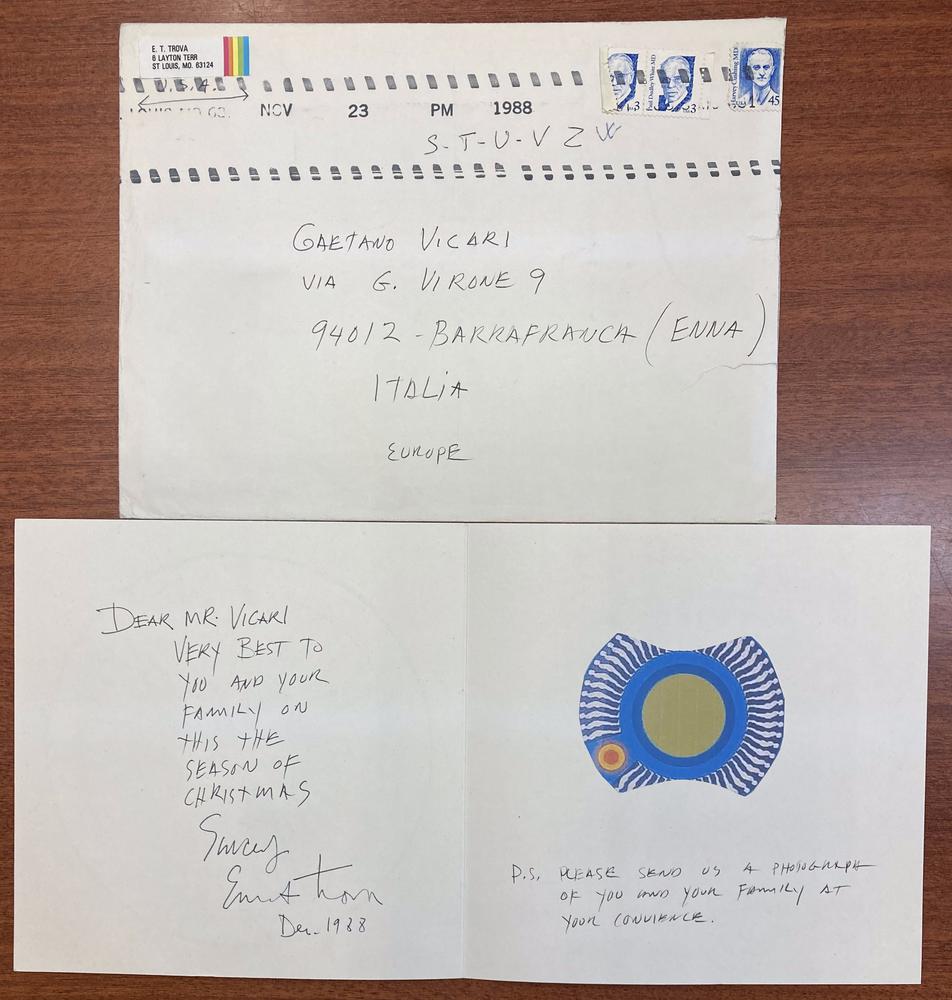 E. T. TROVA
6 LAYTON TERR
ST LOUIS, MO. 63124
U.S.A.
NOV 23 PM 1988
Paul Dudley White MD
Harvey Cushing MD
45
S-T-U-V Z W
GAETANO VICARI
VIA G. VIRONE 9
94012 - BARRAFRANCA (ENNA)
ITALIA
EUROPE
DEAR MR. VICARI
VERY BEST TO
YOU AND YOUR
FAMILY ON
THIS THE
SEASON OF
CHRISTMAS
Ernest Trova
Dec. 1988
P.S. PLEASE SEND US A PHOTOGRAPH
OF YOU AND YOUR FAMILY AT
YOUR CONVIENCE.